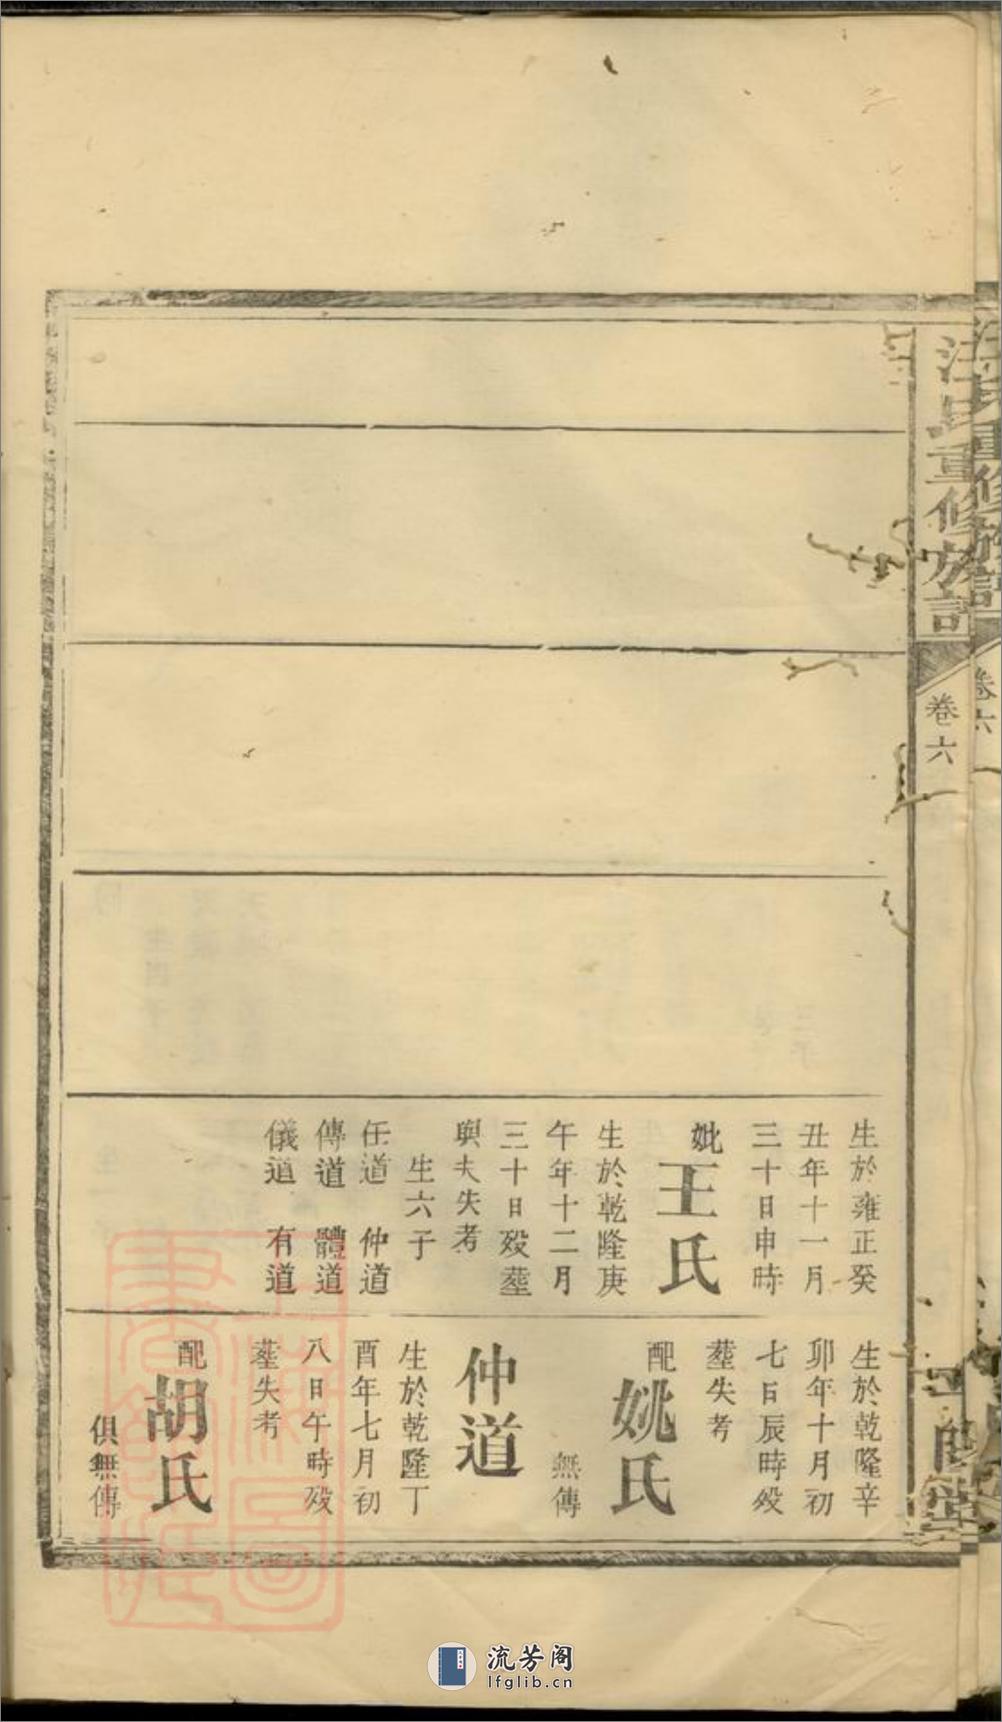 汪氏重修族譜
卷六
生於雍正癸
丑年十一月
三十日申時
妣王氏
生於乾隆庚
午年十二月
三十日殁塟
與夫失考
生六子
任道 仲道
傳道 體道
儀道 有道
生於乾隆辛
卯年十月初
七日辰時殁
塟失考
配姚氏
無傳
仲道
生於乾隆丁
酉年七月初
八日午時殁
塟失考
配胡氏
俱無傳
流芳阁
lfglib.cn